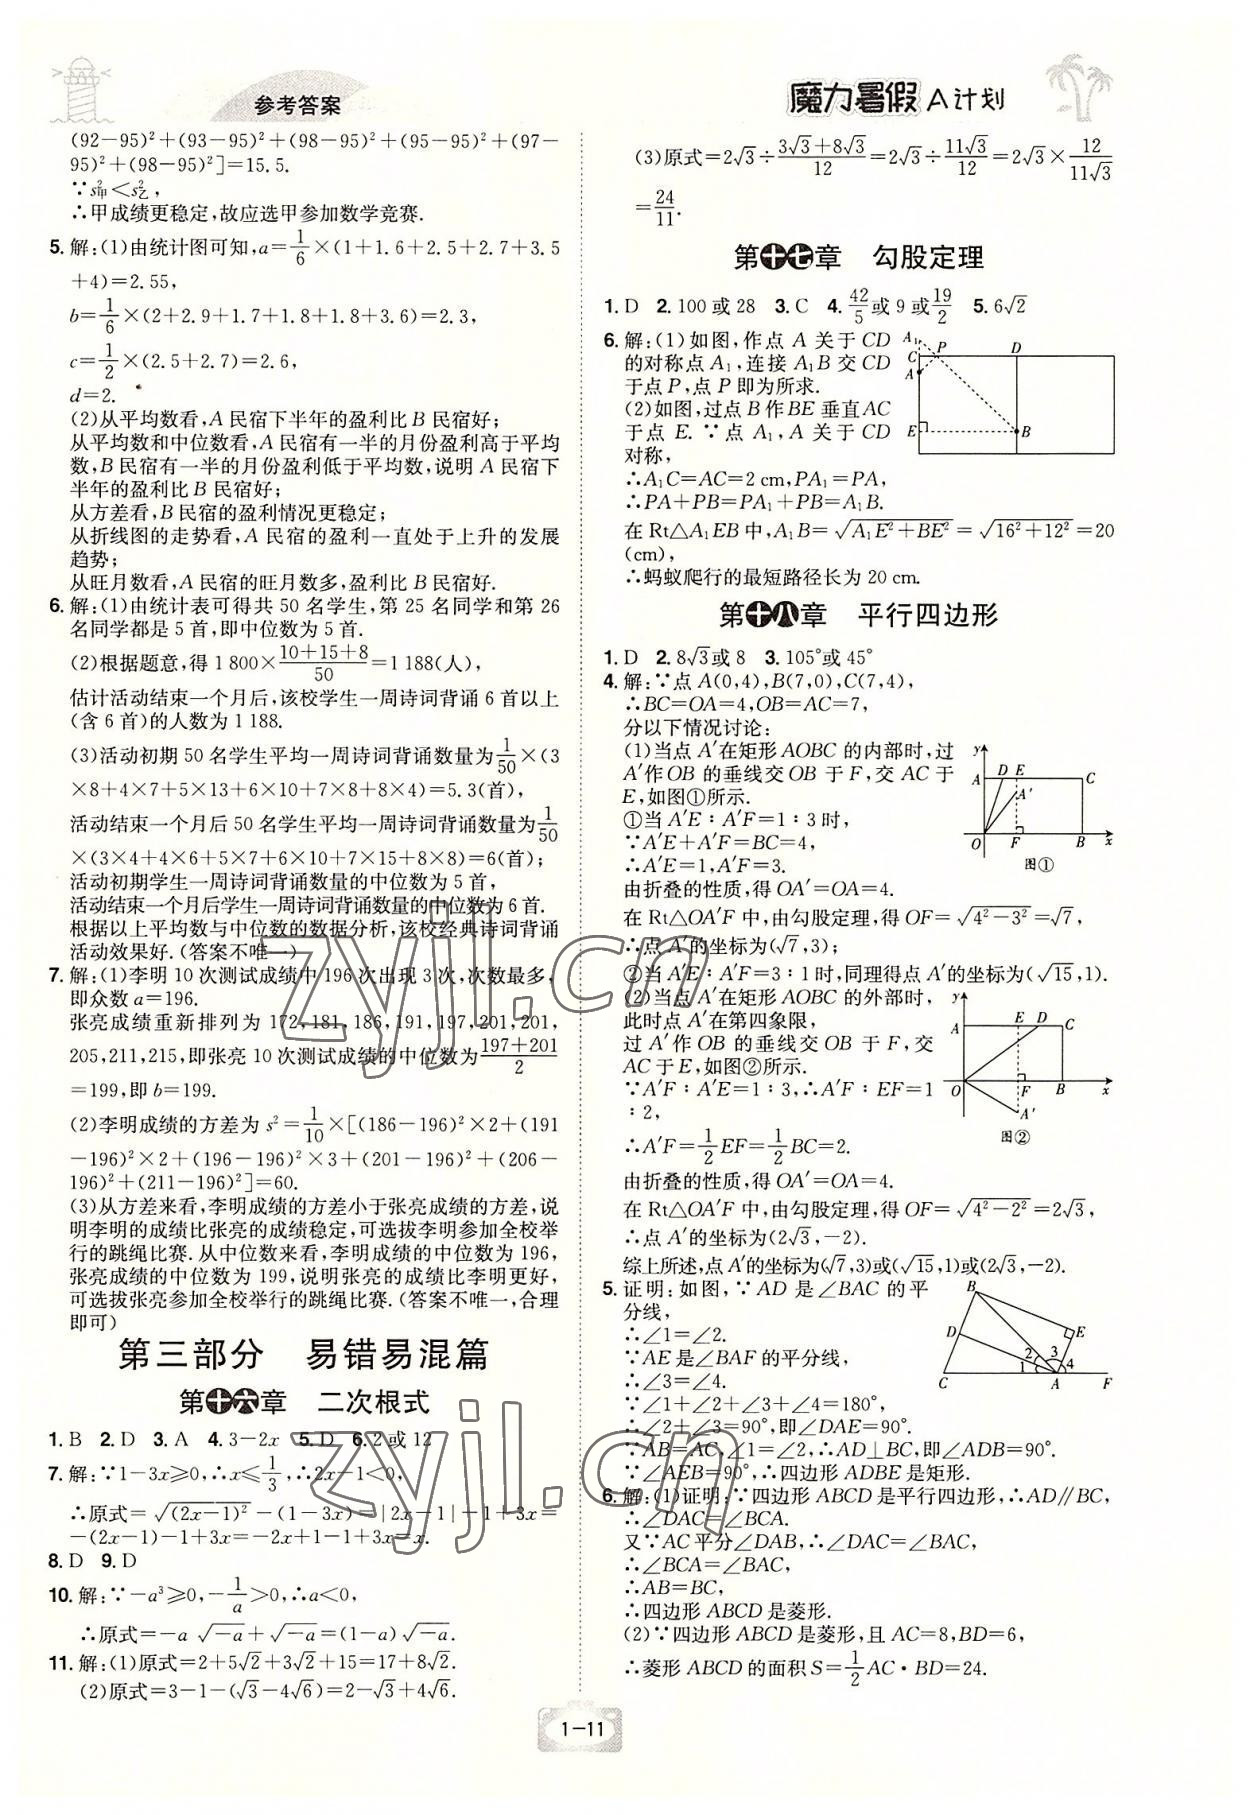 参考答案
魔力暑假A计划
(92-95)²+(93-95)²+(98-95)²+(95-95)²+(97-
95)²+(98-95)²]=15.5.
∵s²甲<s²乙,
∴甲成绩更稳定,故应选甲参加数学竞赛.
5.解:(1)由统计图可知,a=1/6×(1+1.6+2.5+2.7+3.5
+4)=2.55,
b=1/6×(2+2.9+1.7+1.8+1.8+3.6)=2.3,
c=1/2×(2.5+2.7)=2.6,
d=2.
(2)从平均数看,A民宿下半年的盈利比B民宿好;
从平均数和中位数看,A民宿有一半的月份盈利高于平均
数,B民宿有一半的月份盈利低于平均数,说明A民宿下
半年的盈利比B民宿好;
从方差看,B民宿的盈利情况更稳定;
从折线图的走势看,A民宿的盈利一直处于上升的发展
趋势;
从旺月数看,A民宿的旺月数多,盈利比B民宿好.
6.解:(1)由统计表可得共50名学生,第25名同学和第26
名同学都是5首,即中位数为5首.
(2)根据题意,得1 800×(10+15+8)/50=1 188(人),
估计活动结束一个月后,该校学生一周诗词背诵6首以上
(含6首)的人数为1 188.
(3)活动初期50名学生平均一周诗词背诵数量为1/50×(3
×8+4×7+5×13+6×10+7×8+8×4)=5.3(首),
活动结束一个月后50名学生平均一周诗词背诵数量为1/50
×(3×4+4×6+5×7+6×10+7×15+8×8)=6(首);
活动初期学生一周诗词背诵数量的中位数为5首,
活动结束一个月后学生一周诗词背诵数量的中位数为6首.
根据以上平均数与中位数的数据分析,该校经典诗词背诵
活动效果好.(答案不唯一)
7.解:(1)李明10次测试成绩中196次出现3次,次数最多,
即众数a=196.
张亮成绩重新排列为172,181,186,191,197,201,201,
205,211,215,即张亮10次测试成绩的中位数为(197+201)/2
=199,即b=199.
(2)李明成绩的方差为s²=1/10×[(186-196)²×2+(191
-196)²×2+(196-196)²×3+(201-196)²+(206-
196)²+(211-196)²]=60.
(3)从方差来看,李明成绩的方差小于张亮成绩的方差,说
明李明的成绩比张亮的成绩稳定,可选拔李明参加全校举
行的跳绳比赛.从中位数来看,李明成绩的中位数为196,
张亮成绩的中位数为199,说明张亮的成绩比李明更好,
可选拔张亮参加全校举行的跳绳比赛.(答案不唯一,合理
即可)
第三部分 易错易混篇
第十六章 二次根式
1.B 2.D 3.A 4.3-2x 5.D 6.2或12
7.解:∵1-3x≥0,∴x≤1/3,∴2x-1<0,
∴原式=√(2x-1)²-(1-3x)=|2x-1|-1+3x=
-(2x-1)-1+3x=-2x+1-1+3x=x.
8.D 9.D
10.解:∵-a³≥0,-1/a>0,∴a<0,
∴原式=-a√-a+√-a=(1-a)√-a.
11.解:(1)原式=2+5√2+3√2+15=17+8√2.
(2)原式=3-1-(√3-4√6)=2-√3+4√6.
(3)原式=2√3÷(3√3+8√3)/12=2√3÷11√3/12=2√3×12/11√3
=24/11.
第十七章 勾股定理
1.D 2.100或28 3.C 4.42/5或9或19/2 5.6√2
6.解:(1)如图,作点A关于CD
的对称点A₁,连接A₁B交CD
于点P,点P即为所求.
(2)如图,过点B作BE垂直AC
于点E.∵点A₁,A关于CD
对称,
∴A₁C=AC=2 cm,PA₁=PA,
∴PA+PB=PA₁+PB=A₁B.
在Rt△A₁EB中,A₁B=√A₁E²+BE²=√16²+12²=20
(cm),
∴蚂蚁爬行的最短路径长为20 cm.
A₁ P D
C
A
E B
第十八章 平行四边形
1.D 2.8√3或8 3.105°或45°
4.解:∵点A(0,4),B(7,0),C(7,4),
∴BC=OA=4,OB=AC=7,
分以下情况讨论:
(1)当点A′在矩形AOBC的内部时,过
A′作OB的垂线交OB于F,交AC于
E,如图①所示.
①当A′E∶A′F=1∶3时,
∵A′E+A′F=BC=4,
∴A′E=1,A′F=3.
由折叠的性质,得OA′=OA=4.
在Rt△OA′F中,由勾股定理,得OF=√4²-3²=√7,
∴点A′的坐标为(√7,3);
②当A′E∶A′F=3∶1时,同理得点A′的坐标为(√15,1).
y
D E
A C
A′
O F B x
图①
(2)当点A′在矩形AOBC的外部时,
此时点A′在第四象限,
过A′作OB的垂线交OB于F,交
AC于E,如图②所示.
∵A′F∶A′E=1∶3,∴A′F∶EF=1
∶2,
∴A′F=1/2EF=1/2BC=2.
由折叠的性质,得OA′=OA=4.
在Rt△OA′F中,由勾股定理,得OF=√4²-2²=2√3,
∴点A′的坐标为(2√3,-2).
综上所述,点A′的坐标为(√7,3)或(√15,1)或(2√3,-2).
y
E D
A C
O F B x
A′
图②
5.证明:如图,∵AD是∠BAC的平
分线,
∴∠1=∠2.
∵AE是∠BAF的平分线,
∴∠3=∠4.
∵∠1+∠2+∠3+∠4=180°,
∴∠2+∠3=90°,即∠DAE=90°.
∵AB=AC,∠1=∠2,∴AD⊥BC,即∠ADB=90°.
∵∠AEB=90°,∴四边形ADBE是矩形.
B
D E
2 3
1 4
C A F
6.解:(1)证明:∵四边形ABCD是平行四边形,∴AD∥BC,
∴∠DAC=∠BCA.
又∵AC平分∠DAB,∴∠DAC=∠BAC,
∴∠BCA=∠BAC,
∴AB=BC,
∴四边形ABCD是菱形.
(2)∵四边形ABCD是菱形,且AC=8,BD=6,
∴菱形ABCD的面积S=1/2AC·BD=24.
zyjl.cn
zyjl.cn
1-11